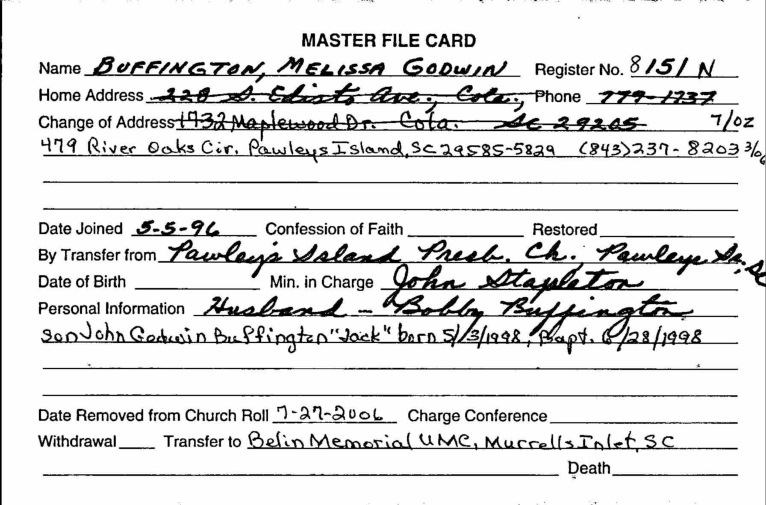 MASTER FILE CARD
Name BUFFINGTON, MELISSA GODWIN Register No. 8151 N
Home Address 228 S. Edisto Ave., Cola., Phone 779-1737
Change of Address 1732 Maplewood Dr. Cola. SC 29205 7/02
479 River Oaks Cir. Pawleys Island, SC 29585-5829 (843)237-8203 3/06
Date Joined 5-5-96 Confession of Faith Restored
By Transfer from Pawley's Island Presb. Ch., Pawleys Is., SC
Date of Birth Min. in Charge John Stapleton
Personal Information Husband - Bobby Buffington
son John Godwin Buffington "Jack" born 5/3/1998; Bapt. 6/28/1998
Date Removed from Church Roll 7-27-2006 Charge Conference
Withdrawal Transfer to Belin Memorial UMC, Murrells Inlet, SC
Death